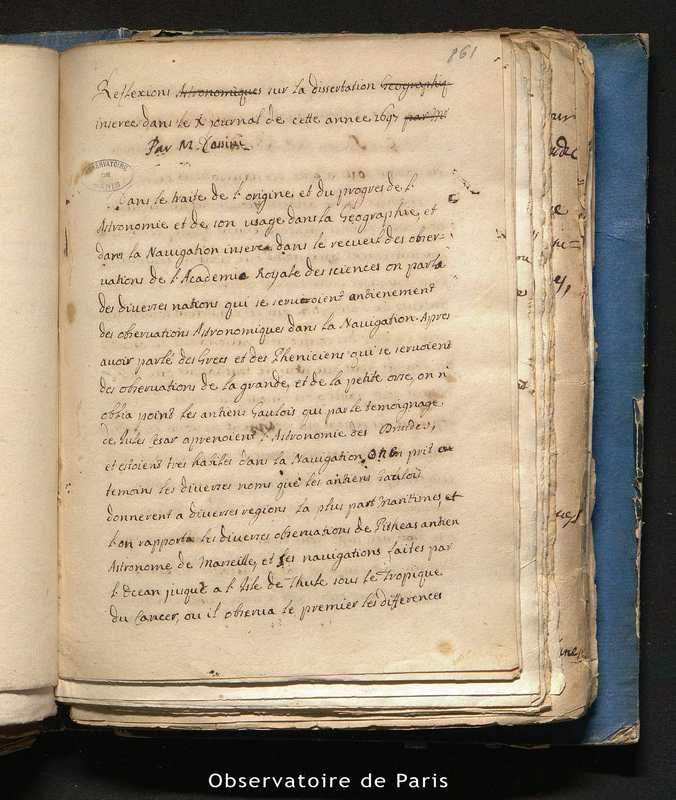 861
Reflexions Astronomiques sur la dissertation Geographiq
inserée dans le X journal de cette année 1697 par Mr
Par M. Cassini
OBSERVATOIRE
DE
PARIS
Dans le traité de l'origine et du progres de l'
Astronomie et de son usage dans la Geographie, et
dans la Navigation inseré dans le recueil des obser-
vations de l'Academie Royale des sciences on parla
des diverses nations qui se servoient antienement
des observations Astronomiques dans la Navigation. Apres
avoir parlé des Grecs et des Pheniciens qui se servoient
des observations de la grande, et de la petite ourse, on n'
oblia point les antiens Gaulois qui par le temoignage
de Jules Cesar aprenoient l'Astronomie des Druides,
et estoient tres habiles dans la Navigation, On en prit
temoins les diverses noms que les antiens Gaulois
donnerent a diverses regions la plus part maritimes, et
l'on rapporta les diverses observations de Pitheas antien
Astronome de Marseille, et ses navigations faites par
l'Ocean jusque a l'Isle de Thule sous le Tropique
du Cancer, ou il observa le premier les differences
Observatoire de Paris